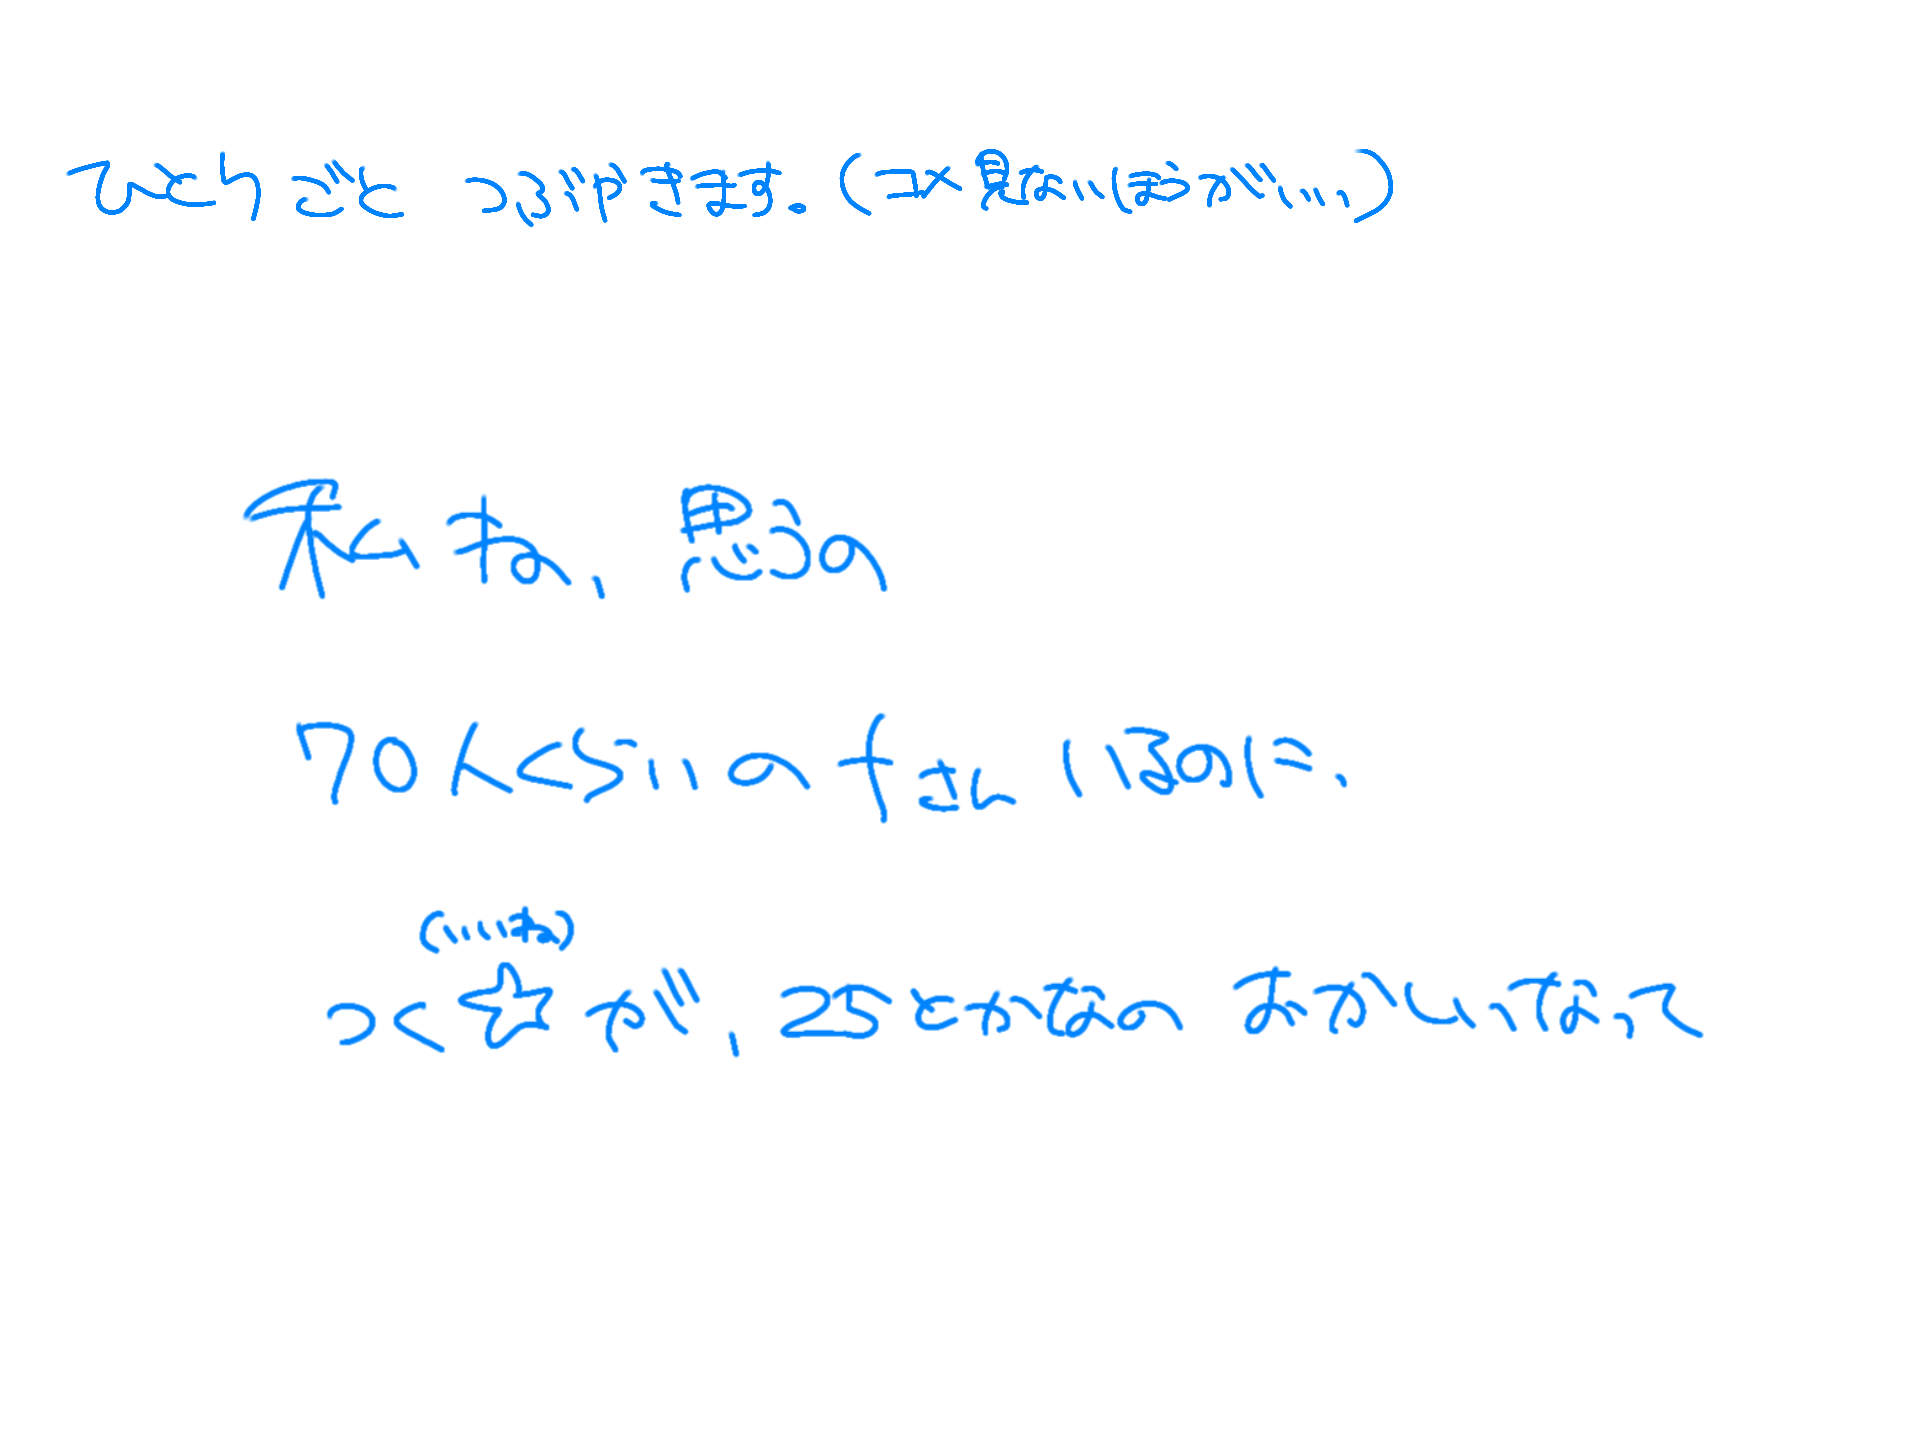 ひとりごと つぶやきます。(コメ見ないほうがいい)
私ね、思うの
70人くらいのfさんいるのに、
(いいね)
つく☆が、25とかなの おかしいなって